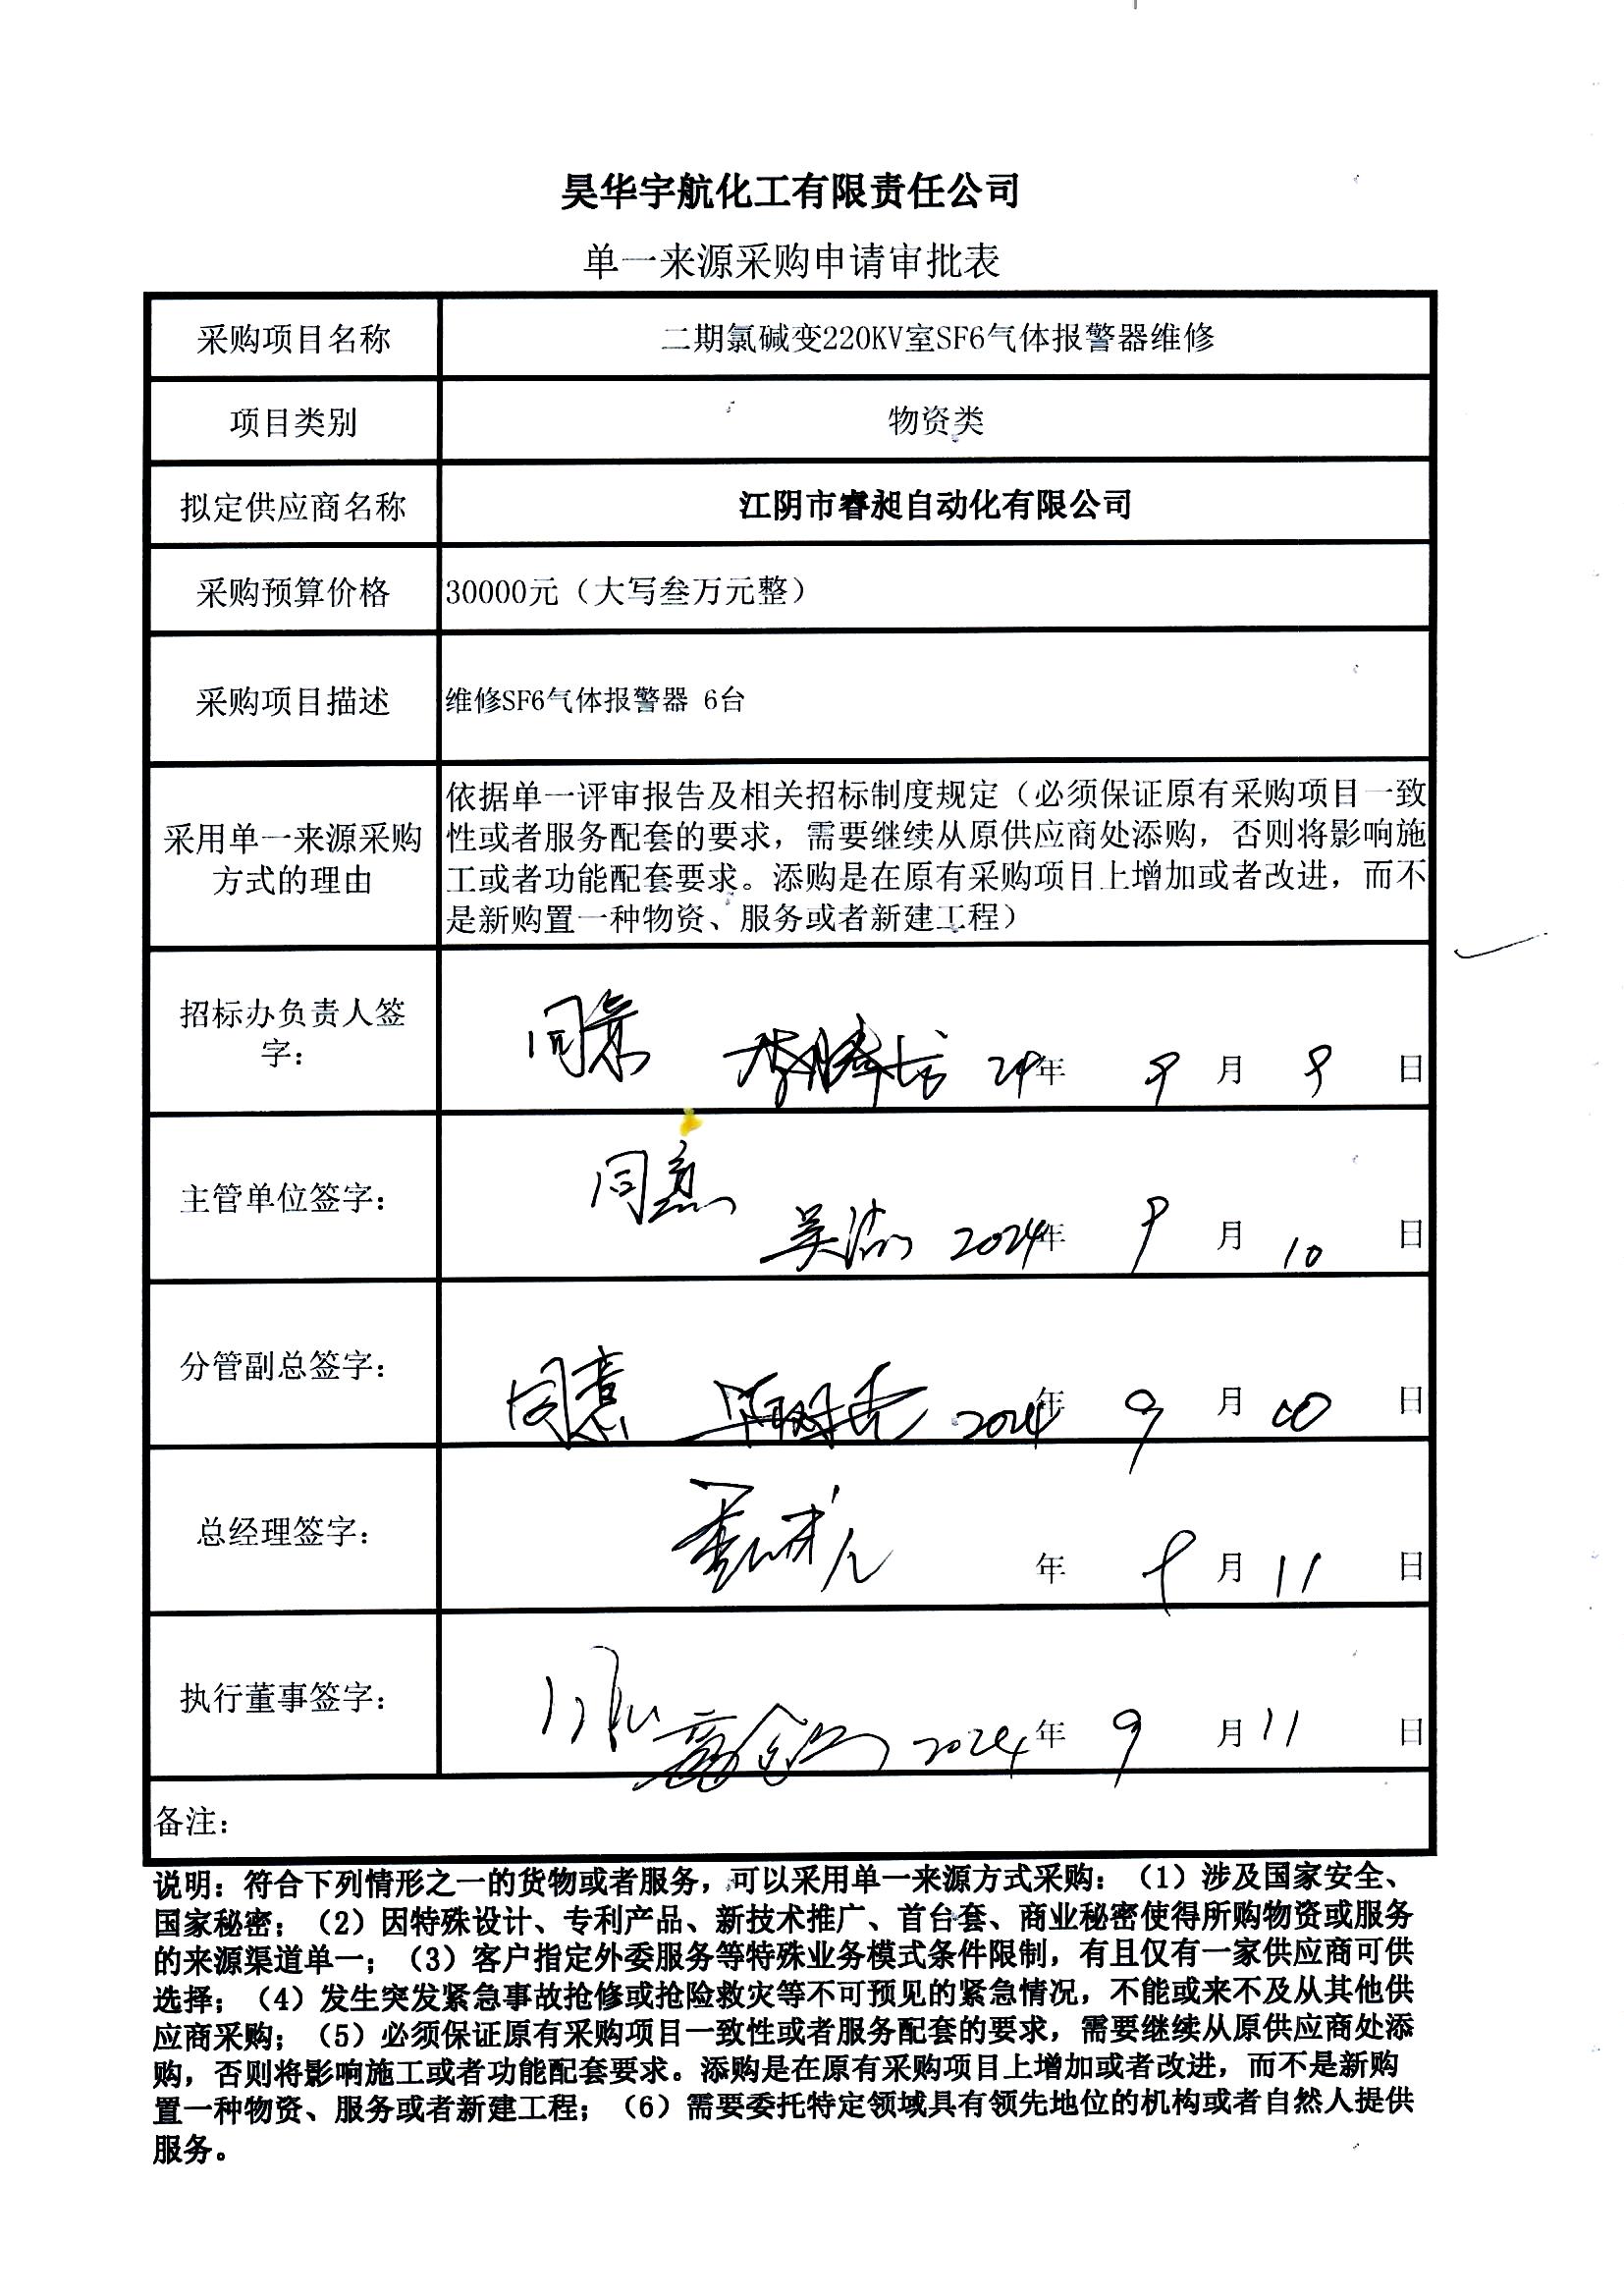 昊华宇航化工有限责任公司
单一来源采购申请审批表
采购项目名称 二期氯碱变220KV室SF6气体报警器维修
项目类别 物资类
拟定供应商名称 江阴市睿昶自动化有限公司
采购预算价格 30000元（大写叁万元整）
采购项目描述 维修SF6气体报警器 6台
采用单一来源采购方式的理由
依据单一评审报告及相关招标制度规定（必须保证原有采购项目一致
性或者服务配套的要求，需要继续从原供应商处添购，否则将影响施
工或者功能配套要求。添购是在原有采购项目上增加或者改进，而不
是新购置一种物资、服务或者新建工程）
招标办负责人签字： 同意 24年 9月 9日
主管单位签字： 同意 2024年 9月 10日
分管副总签字： 同意 2024年 9月 10日
总经理签字： 年 9月 11日
执行董事签字： 2024年 9月 11日
备注：
说明：符合下列情形之一的货物或者服务，可以采用单一来源方式采购：（1）涉及国家安全、
国家秘密；（2）因特殊设计、专利产品、新技术推广、首台套、商业秘密使得所购物资或服务
的来源渠道单一；（3）客户指定外委服务等特殊业务模式条件限制，有且仅有一家供应商可供
选择；（4）发生突发紧急事故抢修或抢险救灾等不可预见的紧急情况，不能或来不及从其他供
应商采购；（5）必须保证原有采购项目一致性或者服务配套的要求，需要继续从原供应商处添
购，否则将影响施工或者功能配套要求。添购是在原有采购项目上增加或者改进，而不是新购
置一种物资、服务或者新建工程；（6）需要委托特定领域具有领先地位的机构或者自然人提供
服务。